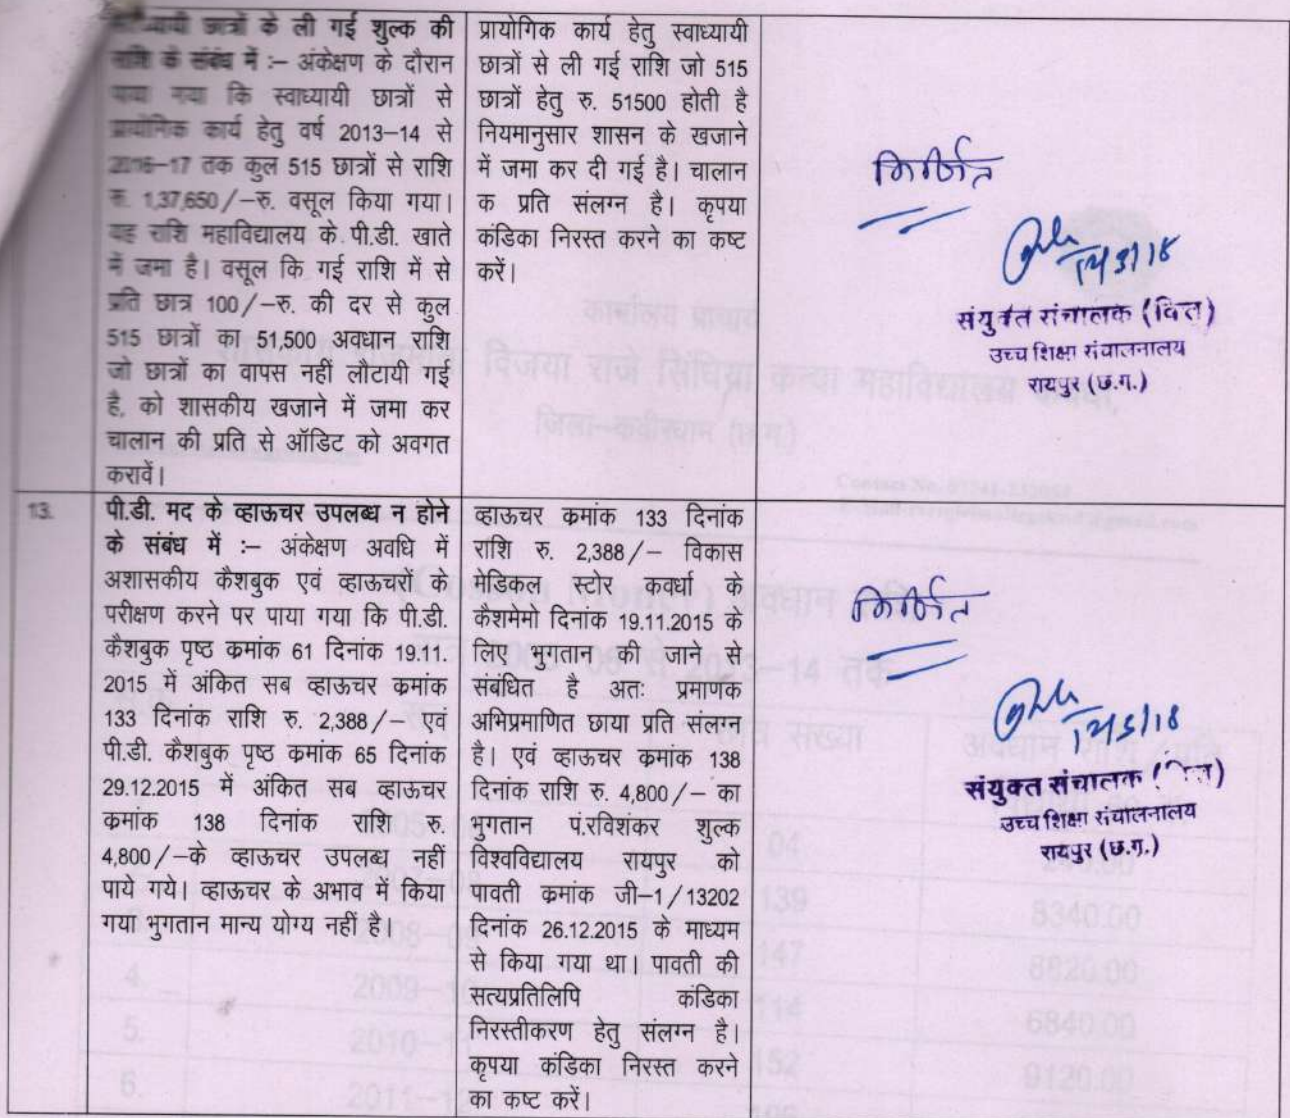 छात्रों के ली गई शुल्क की
राशि के संबंध में :– अंकेक्षण के दौरान
पाया गया कि स्वाध्यायी छात्रों से
प्रायोगिक कार्य हेतु वर्ष 2013–14 से
2016–17 तक कुल 515 छात्रों से राशि
रू. 1,37,650/–रु. वसूल किया गया।
यह राशि महाविद्यालय के पी.डी. खाते
में जमा है। वसूल कि गई राशि में से
प्रति छात्र 100/–रु. की दर से कुल
515 छात्रों का 51,500 अवधान राशि
जो छात्रों का वापस नहीं लौटायी गई
है, को शासकीय खजाने में जमा कर
चालान की प्रति से ऑडिट को अवगत
करावें।
प्रायोगिक कार्य हेतु स्वाध्यायी
छात्रों से ली गई राशि जो 515
छात्रों हेतु रु. 51500 होती है
नियमानुसार शासन के खजाने
में जमा कर दी गई है। चालान
क प्रति संलग्न है। कृपया
कंडिका निरस्त करने का कष्ट
करें।
संयुक्त संचालक (वित्त)
उच्च शिक्षा संचालनालय
रायपुर (छ.ग.)
13.
पी.डी. मद के व्हाऊचर उपलब्ध न होने
के संबंध में :– अंकेक्षण अवधि में
अशासकीय कैशबुक एवं व्हाऊचरों के
परीक्षण करने पर पाया गया कि पी.डी.
कैशबुक पृष्ठ क्रमांक 61 दिनांक 19.11.
2015 में अंकित सब व्हाऊचर क्रमांक
133 दिनांक राशि रु. 2,388/– एवं
पी.डी. कैशबुक पृष्ठ क्रमांक 65 दिनांक
29.12.2015 में अंकित सब व्हाऊचर
क्रमांक 138 दिनांक राशि रु.
4,800/–के व्हाऊचर उपलब्ध नहीं
पाये गये। व्हाऊचर के अभाव में किया
गया भुगतान मान्य योग्य नहीं है।
व्हाऊचर क्रमांक 133 दिनांक
राशि रु. 2,388/– विकास
मेडिकल स्टोर कवर्धा के
कैशमेमो दिनांक 19.11.2015 के
लिए भुगतान की जाने से
संबंधित है अतः प्रमाणक
अभिप्रमाणित छाया प्रति संलग्न
है। एवं व्हाऊचर क्रमांक 138
दिनांक राशि रु. 4,800/– का
भुगतान पं.रविशंकर शुल्क
विश्वविद्यालय रायपुर को
पावती क्रमांक जी–1/13202
दिनांक 26.12.2015 के माध्यम
से किया गया था। पावती की
सत्यप्रतिलिपि कंडिका
निरस्तीकरण हेतु संलग्न है।
कृपया कंडिका निरस्त करने
का कष्ट करें।
संयुक्त संचालक
उच्च शिक्षा संचालनालय
रायपुर (छ.ग.)